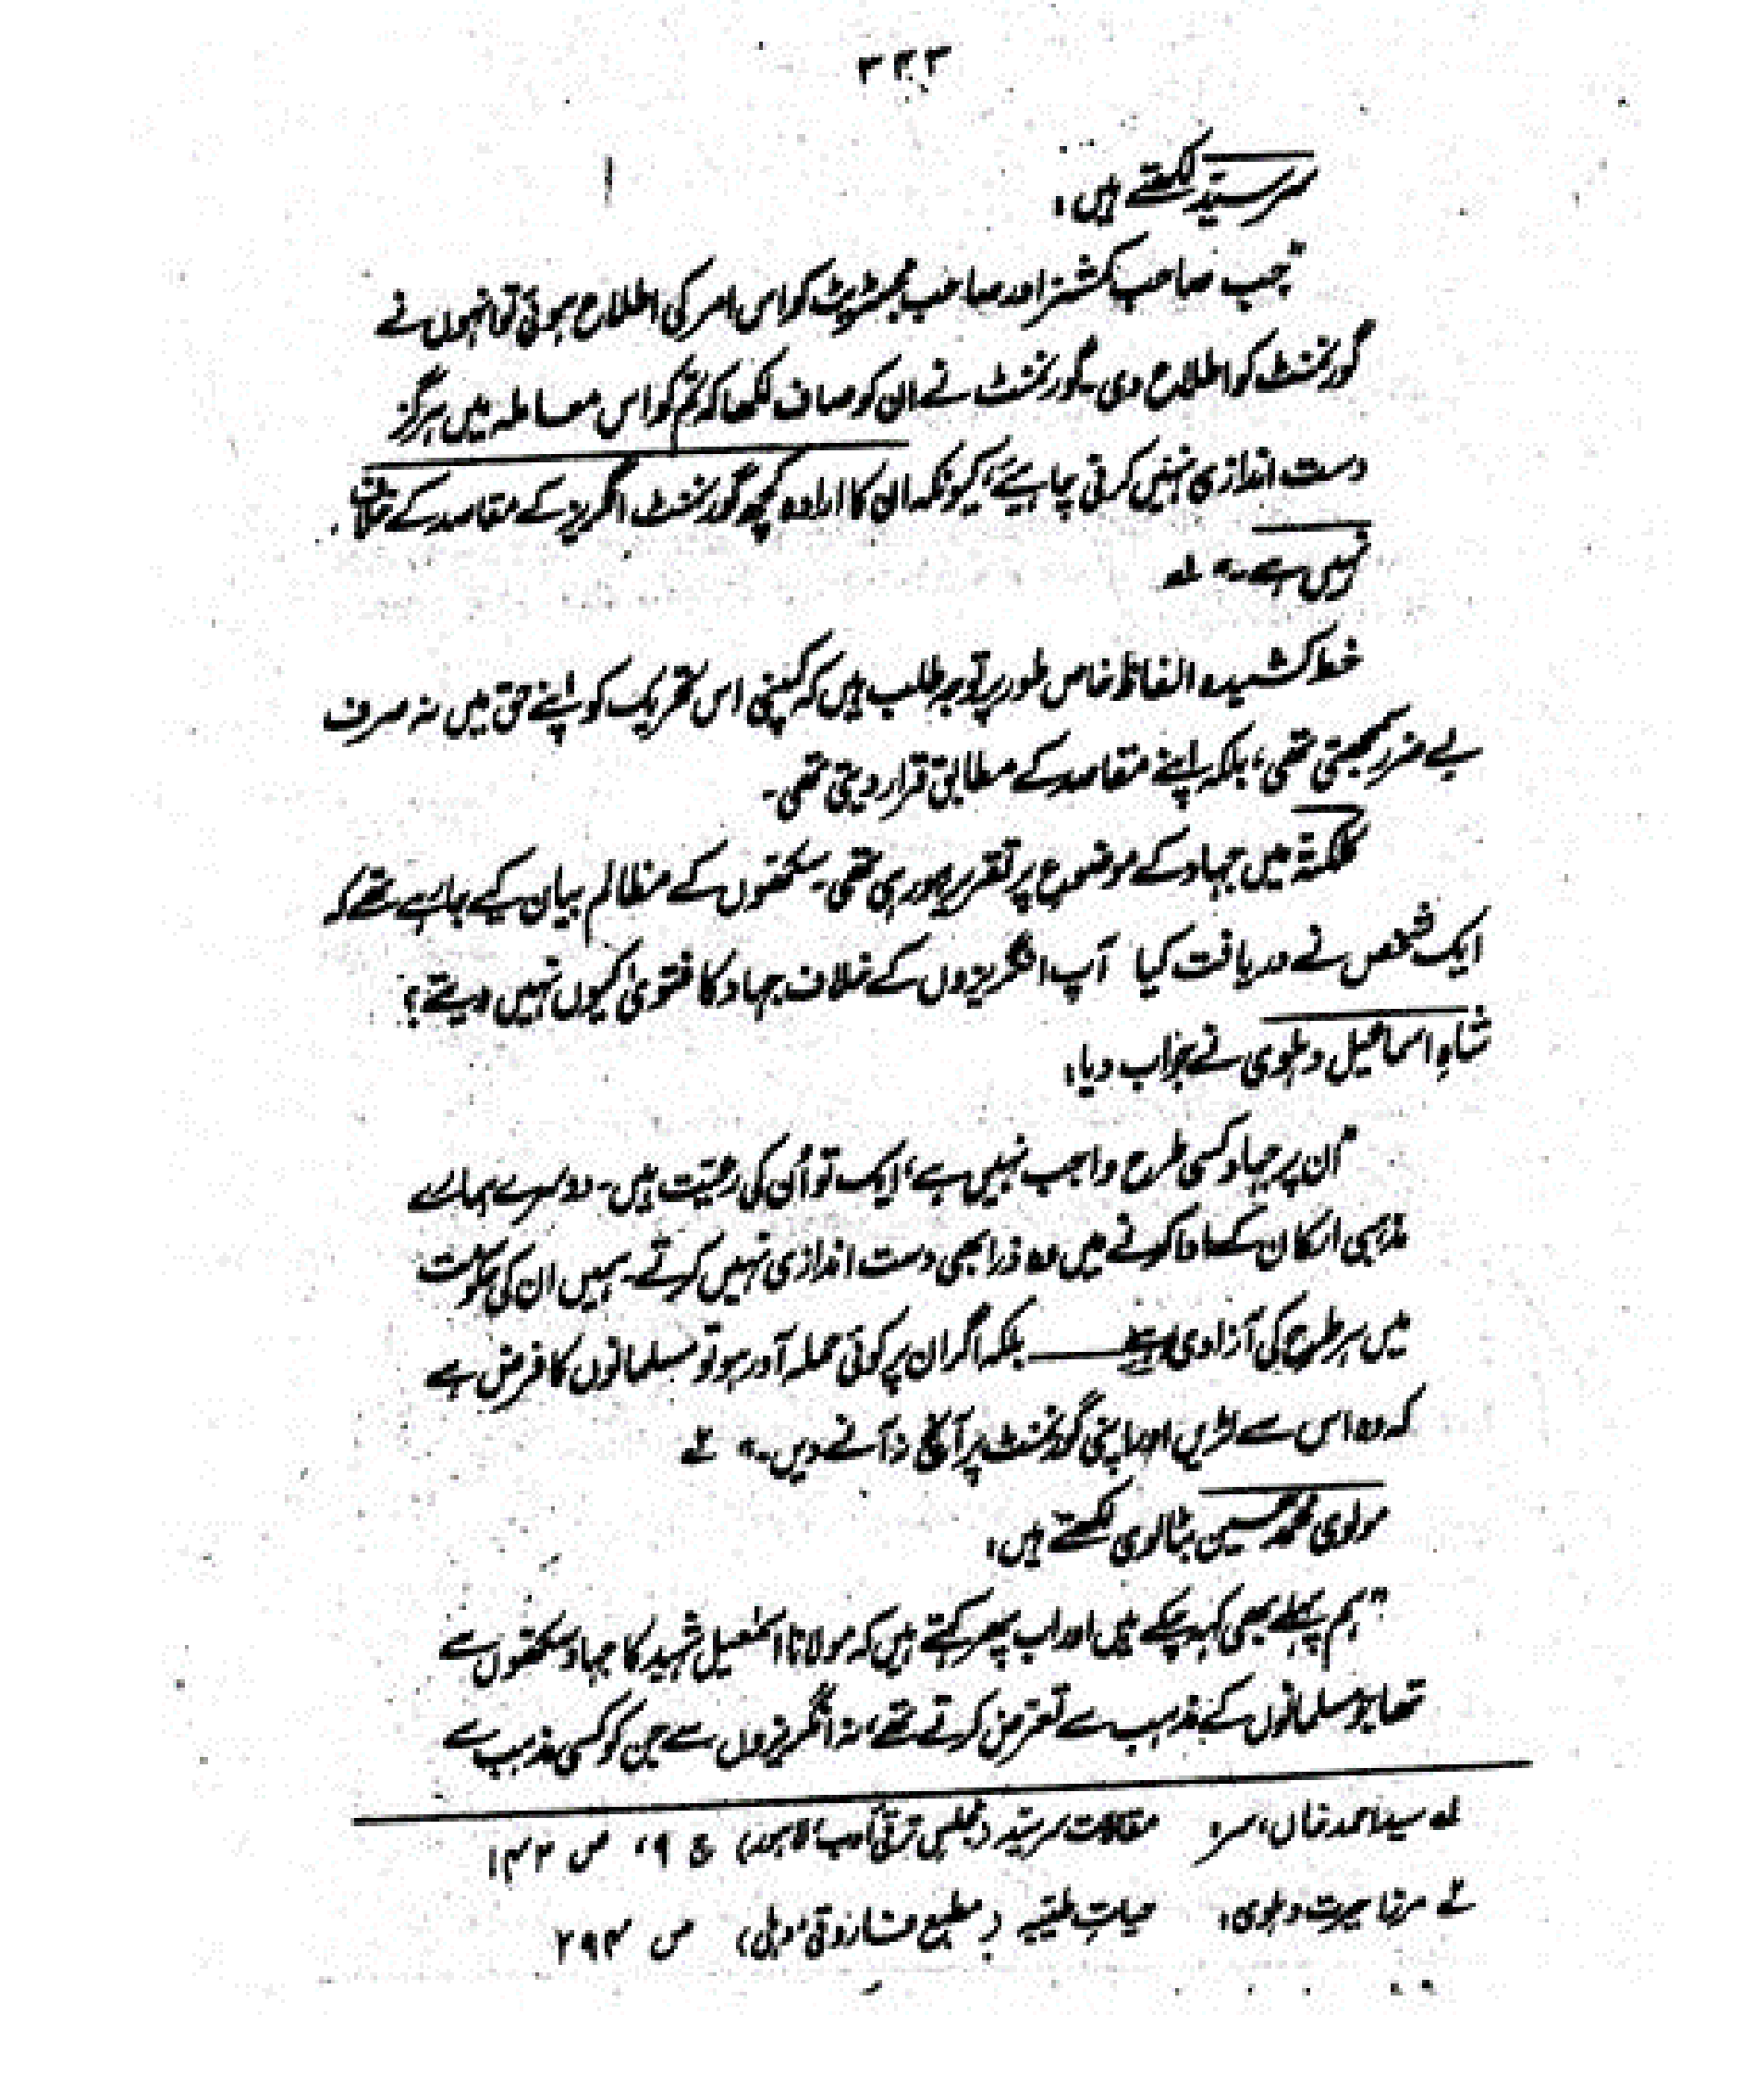 ۳۳۳
سرسیّد لکھتے ہیں:
"جب صاحب کمشنر اور صاحب مجسٹریٹ کو اس امر کی اطلاع ہوئی تو انہوں نے
گورنمنٹ کو اطلاع دی۔ گورنمنٹ نے ان کو صاف لکھا کہ تم کو اس معاملہ میں ہرگز
دست اندازی نہیں کرنی چاہیئے، کیونکہ ان کا ارادہ کچھ گورنمنٹ انگریز کے مقاصد کے خلاف
نہیں ہے۔" لہ
خط کشیدہ الفاظ خاص طور پر توجہ طلب ہیں کہ کمپنی اس تحریک کو اپنے حق میں نہ صرف
بے ضرر سمجھتی تھی، بلکہ اپنے مقاصد کے مطابق قرار دیتی تھی۔
کلکتہ میں جہاد کے موضوع پر تقریر ہو رہی تھی۔ سکھوں کے مظالم بیان کیے جا رہے تھے کہ
ایک شخص نے دریافت کیا آپ انگریزوں کے خلاف جہاد کا فتویٰ کیوں نہیں دیتے؟
شاہ اسماعیل دہلوی نے جواب دیا:
"اُن پر جہاد کسی طرح واجب نہیں ہے، ایک تو اُن کی رعیّت ہیں۔ دوسرے ہمارے
مذہبی ارکان کے ادا کرنے میں وہ ذرا بھی دست اندازی نہیں کرتے۔ ہمیں ان کی حکومت
میں ہر طرح کی آزادی ہے ــــــ بلکہ اگر ان پر کوئی حملہ آور ہو تو مسلمانوں کا فرض ہے
کہ وہ اس سے لڑیں اور اپنی گورنمنٹ پر آنچ نہ آنے دیں۔" ۲ہ
مولوی محمد حسین بٹالوی لکھتے ہیں:
"ہم پہلے بھی کہہ چکے ہیں اور اب پھر کہتے ہیں کہ مولانا اسمٰعیل شہید کا جہاد سکھوں سے
تھا جو مسلمانوں کے مذہب سے تعرض کرتے تھے، نہ انگریزوں سے جن کو کسی مذہب سے
لہ سید احمد خاں، سر: مقالات سرسیّد (مجلس ترقی ادب، لاہور) ج ۹، ص ۱۴۲
۲ہ مرزا حیرت دہلوی: حیاتِ طیّبہ (مطبع فاروقی دہلی) ص ۲۹۴